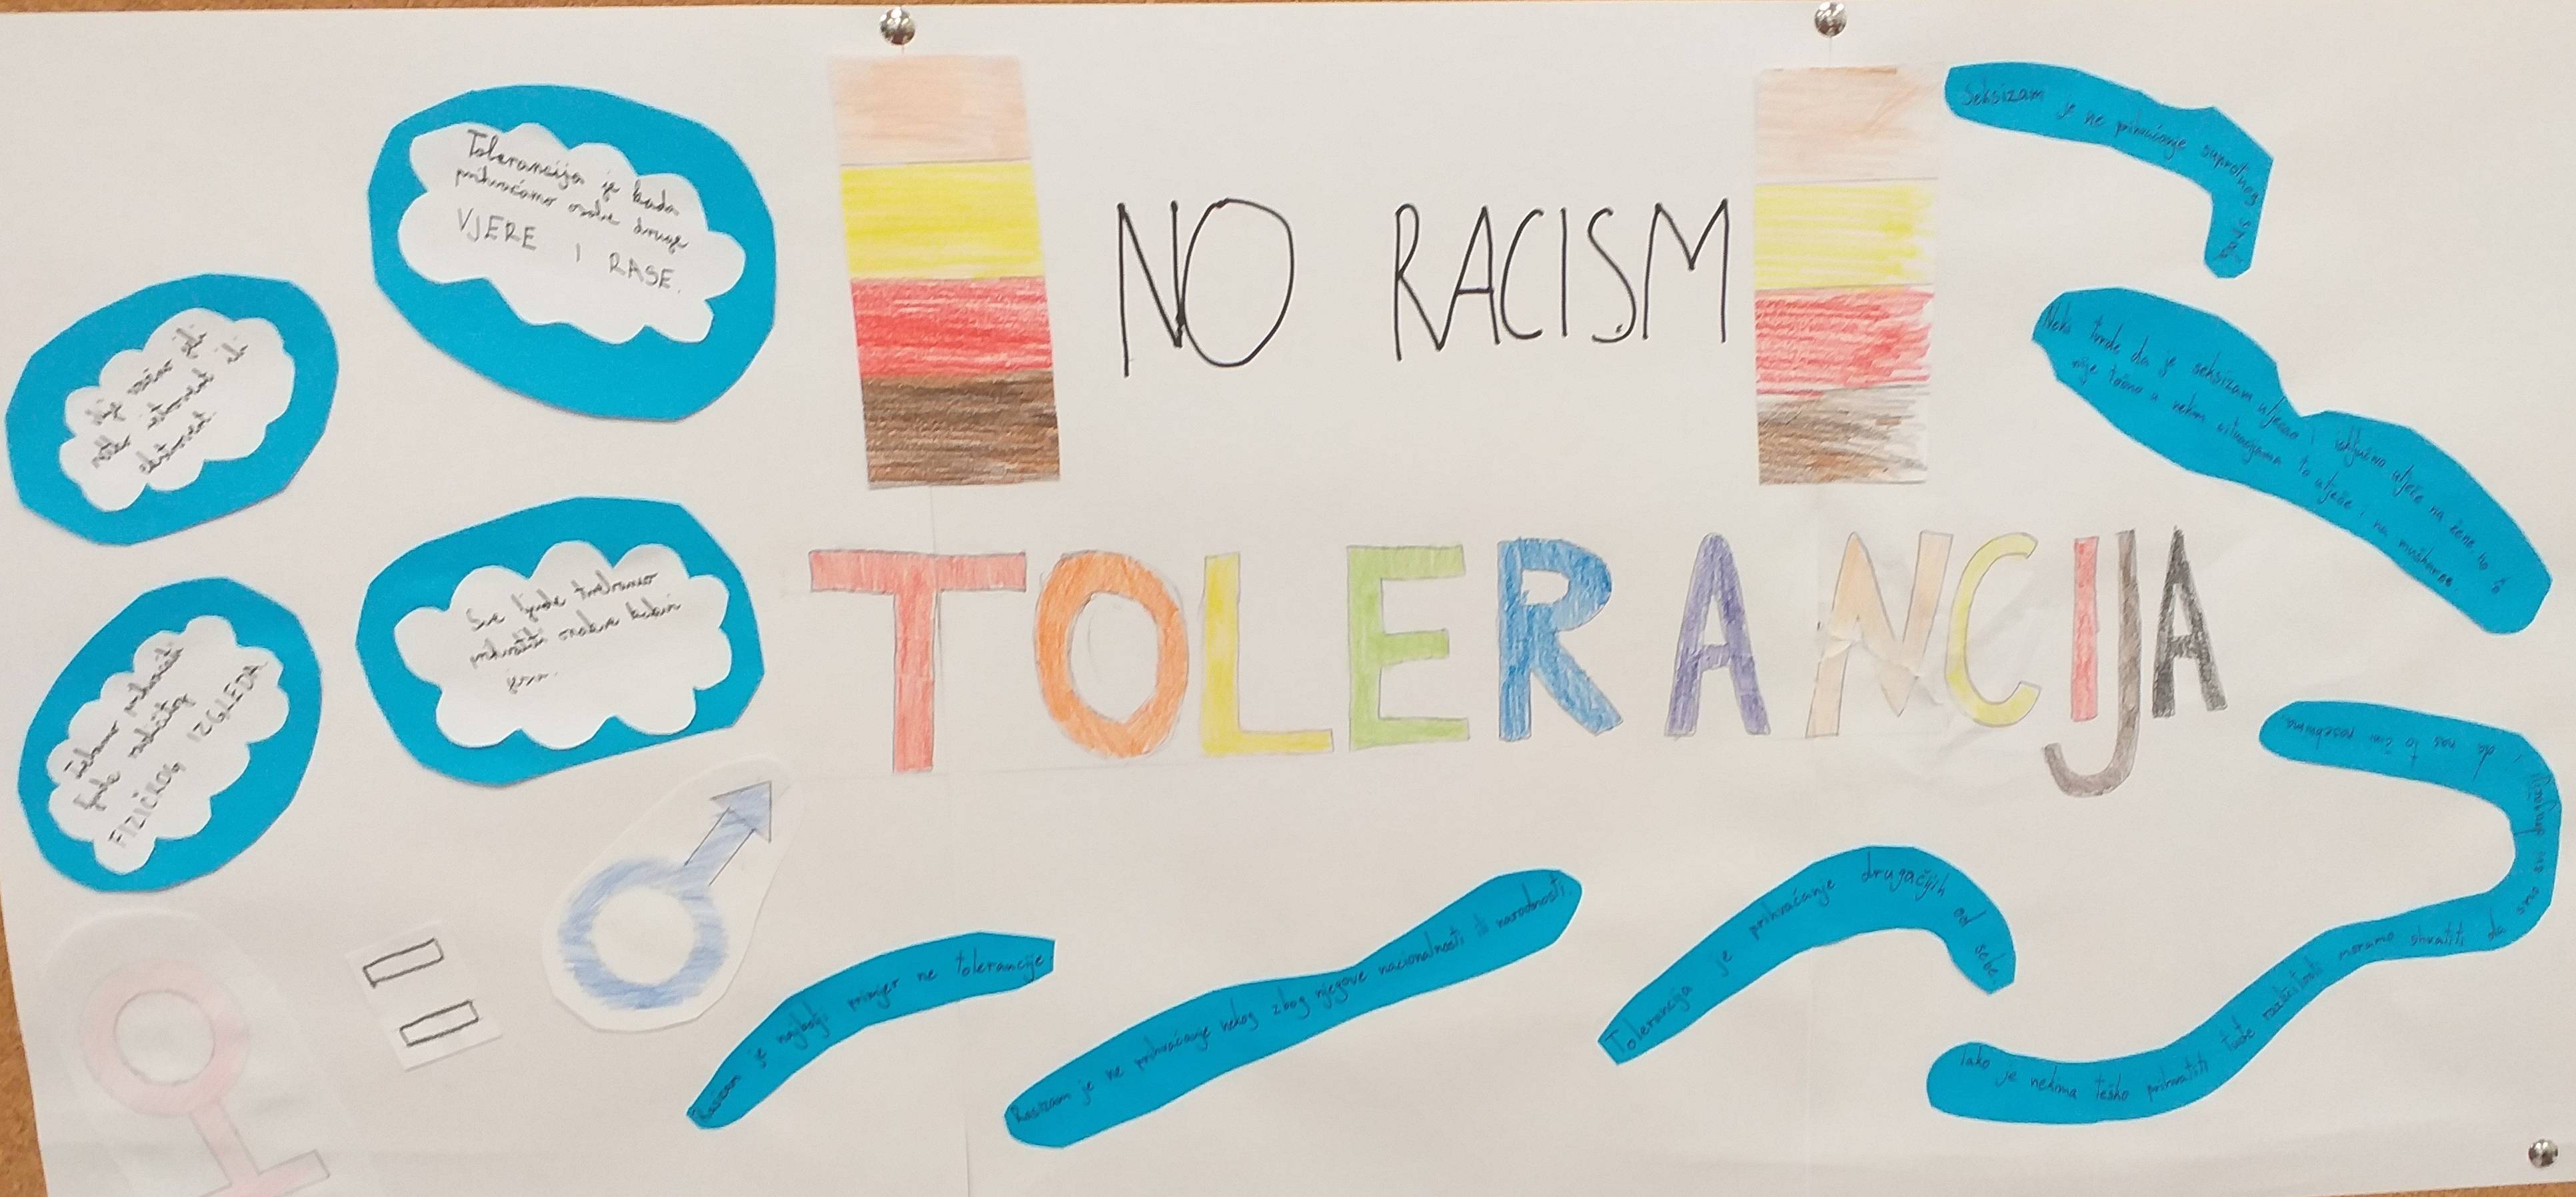 Tolerancija je kada
prihvaćamo osobe druge
VJERE I RASE.
NO RACISM
Seksizam je ne prihvaćanje suprotnog spola
nije važno jeli
netko
Neki tvrde da je seksizam utjecao i isključivo utječe na žene, no to
nije točno u nekim situacijama to utječe i na muškarce.
TOLERANCIJA
Sve ljude trebamo
prihvatiti onakve kakvi
jesu.
Trebamo prihvatiti
ljude različitog
FIZIČKOG IZGLEDA
Rasizam je najbolji primjer ne tolerancije
Rasizam je ne prihvaćanje nekog zbog njegove nacionalnosti ili narodnosti.
Tolerancija je prihvaćanje drugačijih od sebe
Iako je nekima teško prihvatiti tuđe različitosti moramo shvatiti da smo mi drugačiji i da nas to čini posebnima.